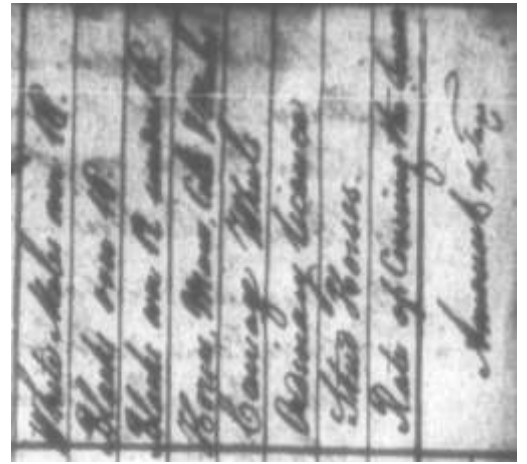 White Males over 16.
Blacks over 16.
Blacks over 12 under 16.
Horses, Mares, Colts & Mules
Carriage Wheels
Ordinary License
Stud Horses.
Rate of Covering the Season
Amount of Tax